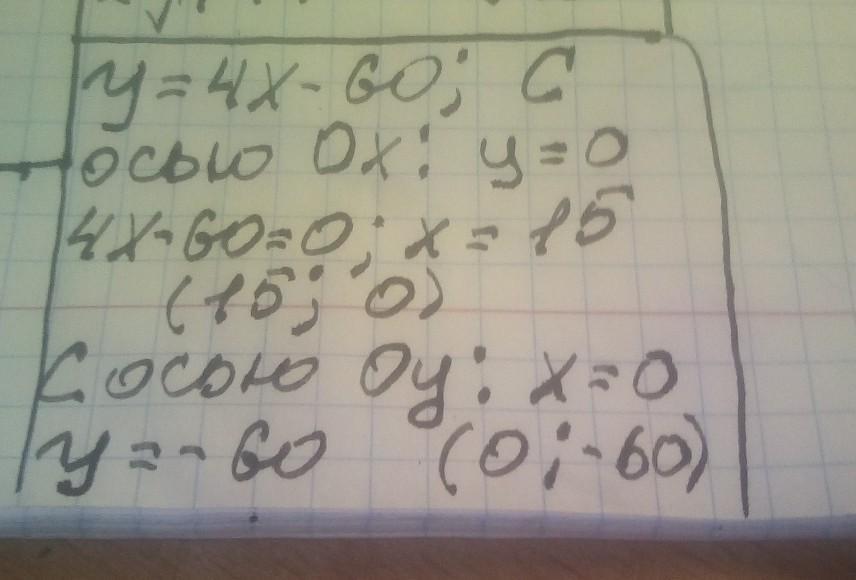 y = 4x - 60; С
осью Ox: y = 0
4x - 60 = 0; x = 15
(15; 0)
С осью Oy: x = 0
y = - 60 (0; -60)